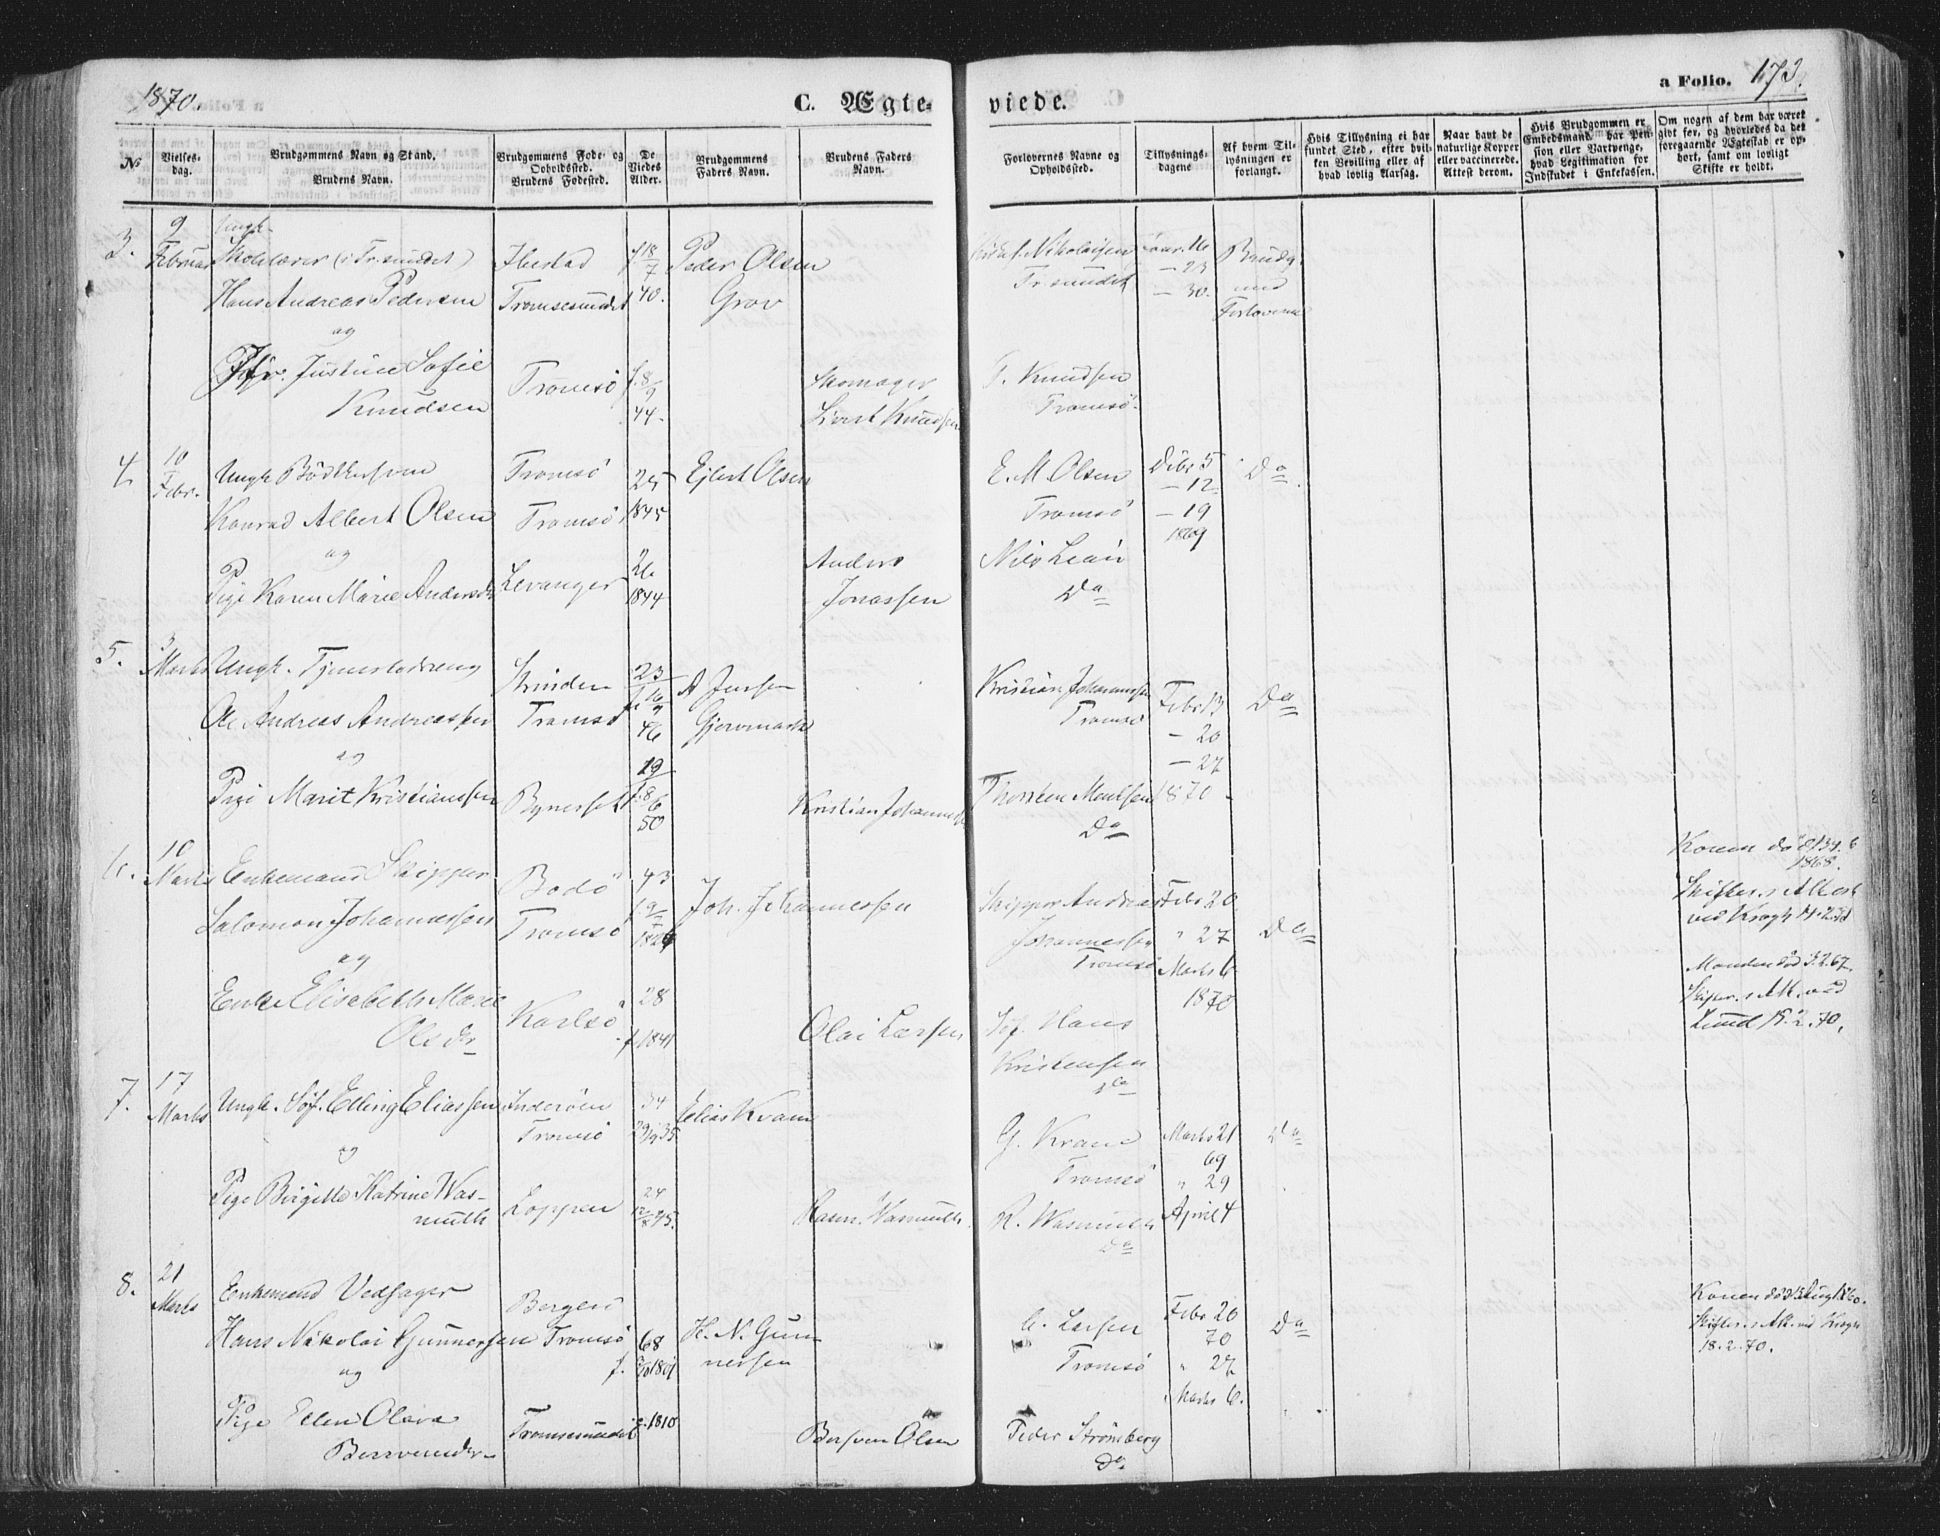 1870.
C. Ægteviede.
a Folio. 173.
No
Vielses-dag.
Brudgommens Navn og Stand.
Brudens Navn.
Brudgommens Føde- og Opholdssted.
Brudens Fødested.
De Viedes Alder.
Brudgommens Faders Navn.
Brudens Faders Navn.
Forlovernes Navne og Opholdssted.
Tillysnings-dagene
Af hvem Tillysningen er forlangt.
Hvis Tillysning ei har fundet Sted, efter hvilken Bevilling eller af hvad lovlig Aarsag.
Naar havt de naturlige Kopper eller vaccinerede. Attest derom.
Hvis Brudgommen er Embedsmand, har Pension eller Vartpenge, hvad Legitimation for Indskudet i Enkekassen.
Om nogen af dem har været givt før, og hvorledes da det foregaaende Ægteskab er ophørt, samt om lovligt Skifte er holdt.
3. 9 Februar
Ungk. Skolelærer (i Tr.sundet)
Hans Andreas Pedersen
og
Jfr. Justine Sofie
Knudsen
Ibestad
Tromsesundet
Tromsö
f. 18/7 40.
f. 8/9 44.
Peder Olsen
Grov
Skomager
Sivert Knudsen
Nikolaisen
Tr.sundet
T. Knudsen
Tromsö.
Januar 16
— 23
— 30.
Brudg.
med
Forloverne
4. 10 Febr.
Ungk Bödkersven
Konrad Albert Olsen
og
Pige Karen Marie Andersdr
Tromsö
Tromsö
Levanger
25
1845
26
1844
Ejlert Olsen
Anders
Jonassen
E. M. Olsen
Tromsö
Nils
Do
Decbr 5
— 12
— 19
1869
Do
5. 3 Marts
Ungk. Tjenestedreng
Ole Andreas Andreassen
og
Pige Marit Kristianssen
Strinden
Tromsö
Bynesset
23
f. 16/9 46
19
f. 8/6 50
A Jensen
Gjervmark
Kristian Johannessen
Kristian Johannessen
Tromsö
Thorsten
Do
Febr 13
— 20
— 27
1870.
Do
6. 10 Marts
Enkemand Skipper
Salomon Johannessen
og
Enke Elisabeth Marie
Olsdr
Bodö
Tromsö
Karlsö
43
28
f. 1841
Joh. Johannessen
Olai Larsen
Skipper Andreas
Johannessen
Tromsö
Söf. Hans
Kristensen
do
Febr 20
" 27
Marts 6
1870
Do
Konen död
1868.
Skifter. s Attest
ved Krogh
Manden död 3.2.67.
Skifter. s Att. ved
Lund 15.2.70.
7. 17 Marts
Ungk. Söf. Elling Eliassen
og
Pige Birgitte Katrine Was-
muth
Inderöen
Tromsö
Loppen
34
24
Elias Kvam
Herm. Wasmuth.
G. Kvam
Tromsö
R. Wasmuth
Do
Marts 21
69
" 29
April 4
Do
8. 21 Marts
Enkemand Vedsager
Hans Nikolai Gunnersen
og
Pige Ellen Olava
Bersvendr.
Bergen
Tromsö
Tromsesundet
68
f. 1801
f. 1810
H. N. Gun-
nersen
Bersven Olsen
C. Larsen
Tromsö
Peder Strömberg
Do
Febr 20
70
" 27
Marts 6.
Do
Konen död
Skifter. s Att. ved Krogh
18.2.70.